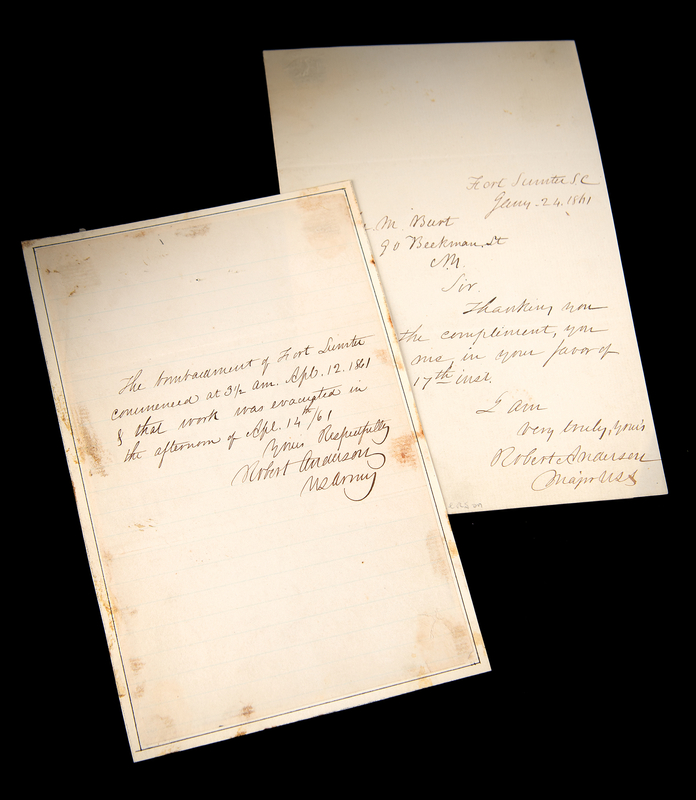 Fort Sumter S.C
Jany. 24. 1861
M. Burt
90 Beekman. St
N.Y.
Sir.
Thanking you
the compliment, you
me, in your favor of
17th inst.
I am
very truly, yours
Robert Anderson
Major U.S.A
The bombardment of Fort Sumter
commenced at 3½ am. Apl. 12. 1861
& that work was evacuated in
the afternoon of Apl. 14th/61
Yours Respectfully
Robert Anderson
US Army